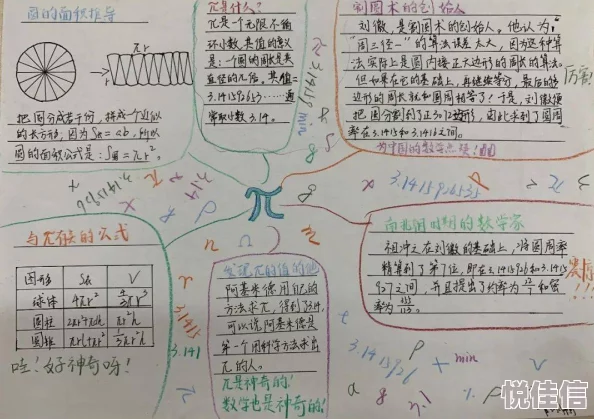 圆的面积推导
πr
r
把圆分成若干份，拼成个近似
的长方形，因为S长=ab，所以
圆的面积公式是：S圆=πr²。
π是什么？
π是一个无限不循
环小数，其值的含义
是：一个圆的周长是其
直径的几倍，其值=
3.141592653……通
常取小数3.14。
割圆术的创始人
刘徽，是割圆术的创始人。他认为，
"周三径一"的算法误差太大，因为这种算
法实际上是圆内接正六边形的周长的算法。
但如果在它的基础上，再继续等分，最后的多
边形的周长就和圆周相等了！于是，刘徽便
把圆分割到了正3072边形，因此求到了圆周
率在3.14和3.1416之间。
为中国的数学点赞！
厉害！
π
3.1415926535
与π有关的公式
图形 S V
球体 4πr²
圆柱 πr²h
圆锥
哇！好神奇呀！
阿基米德用他的
方法求π，得到了3.14，
可以说，阿基米德是
第一个用科学方法求出
π的人。
π是神奇的！
数学也是神奇的！
南北朝时期的数学家
祖冲之在刘徽的基础上，将圆周率
精算到了第7位，即在3.1415926和3.1415
927之间，并且提出了约率为22/7和密
率为355/113。
3.1415
3.141
3.1415926
min
悦佳信